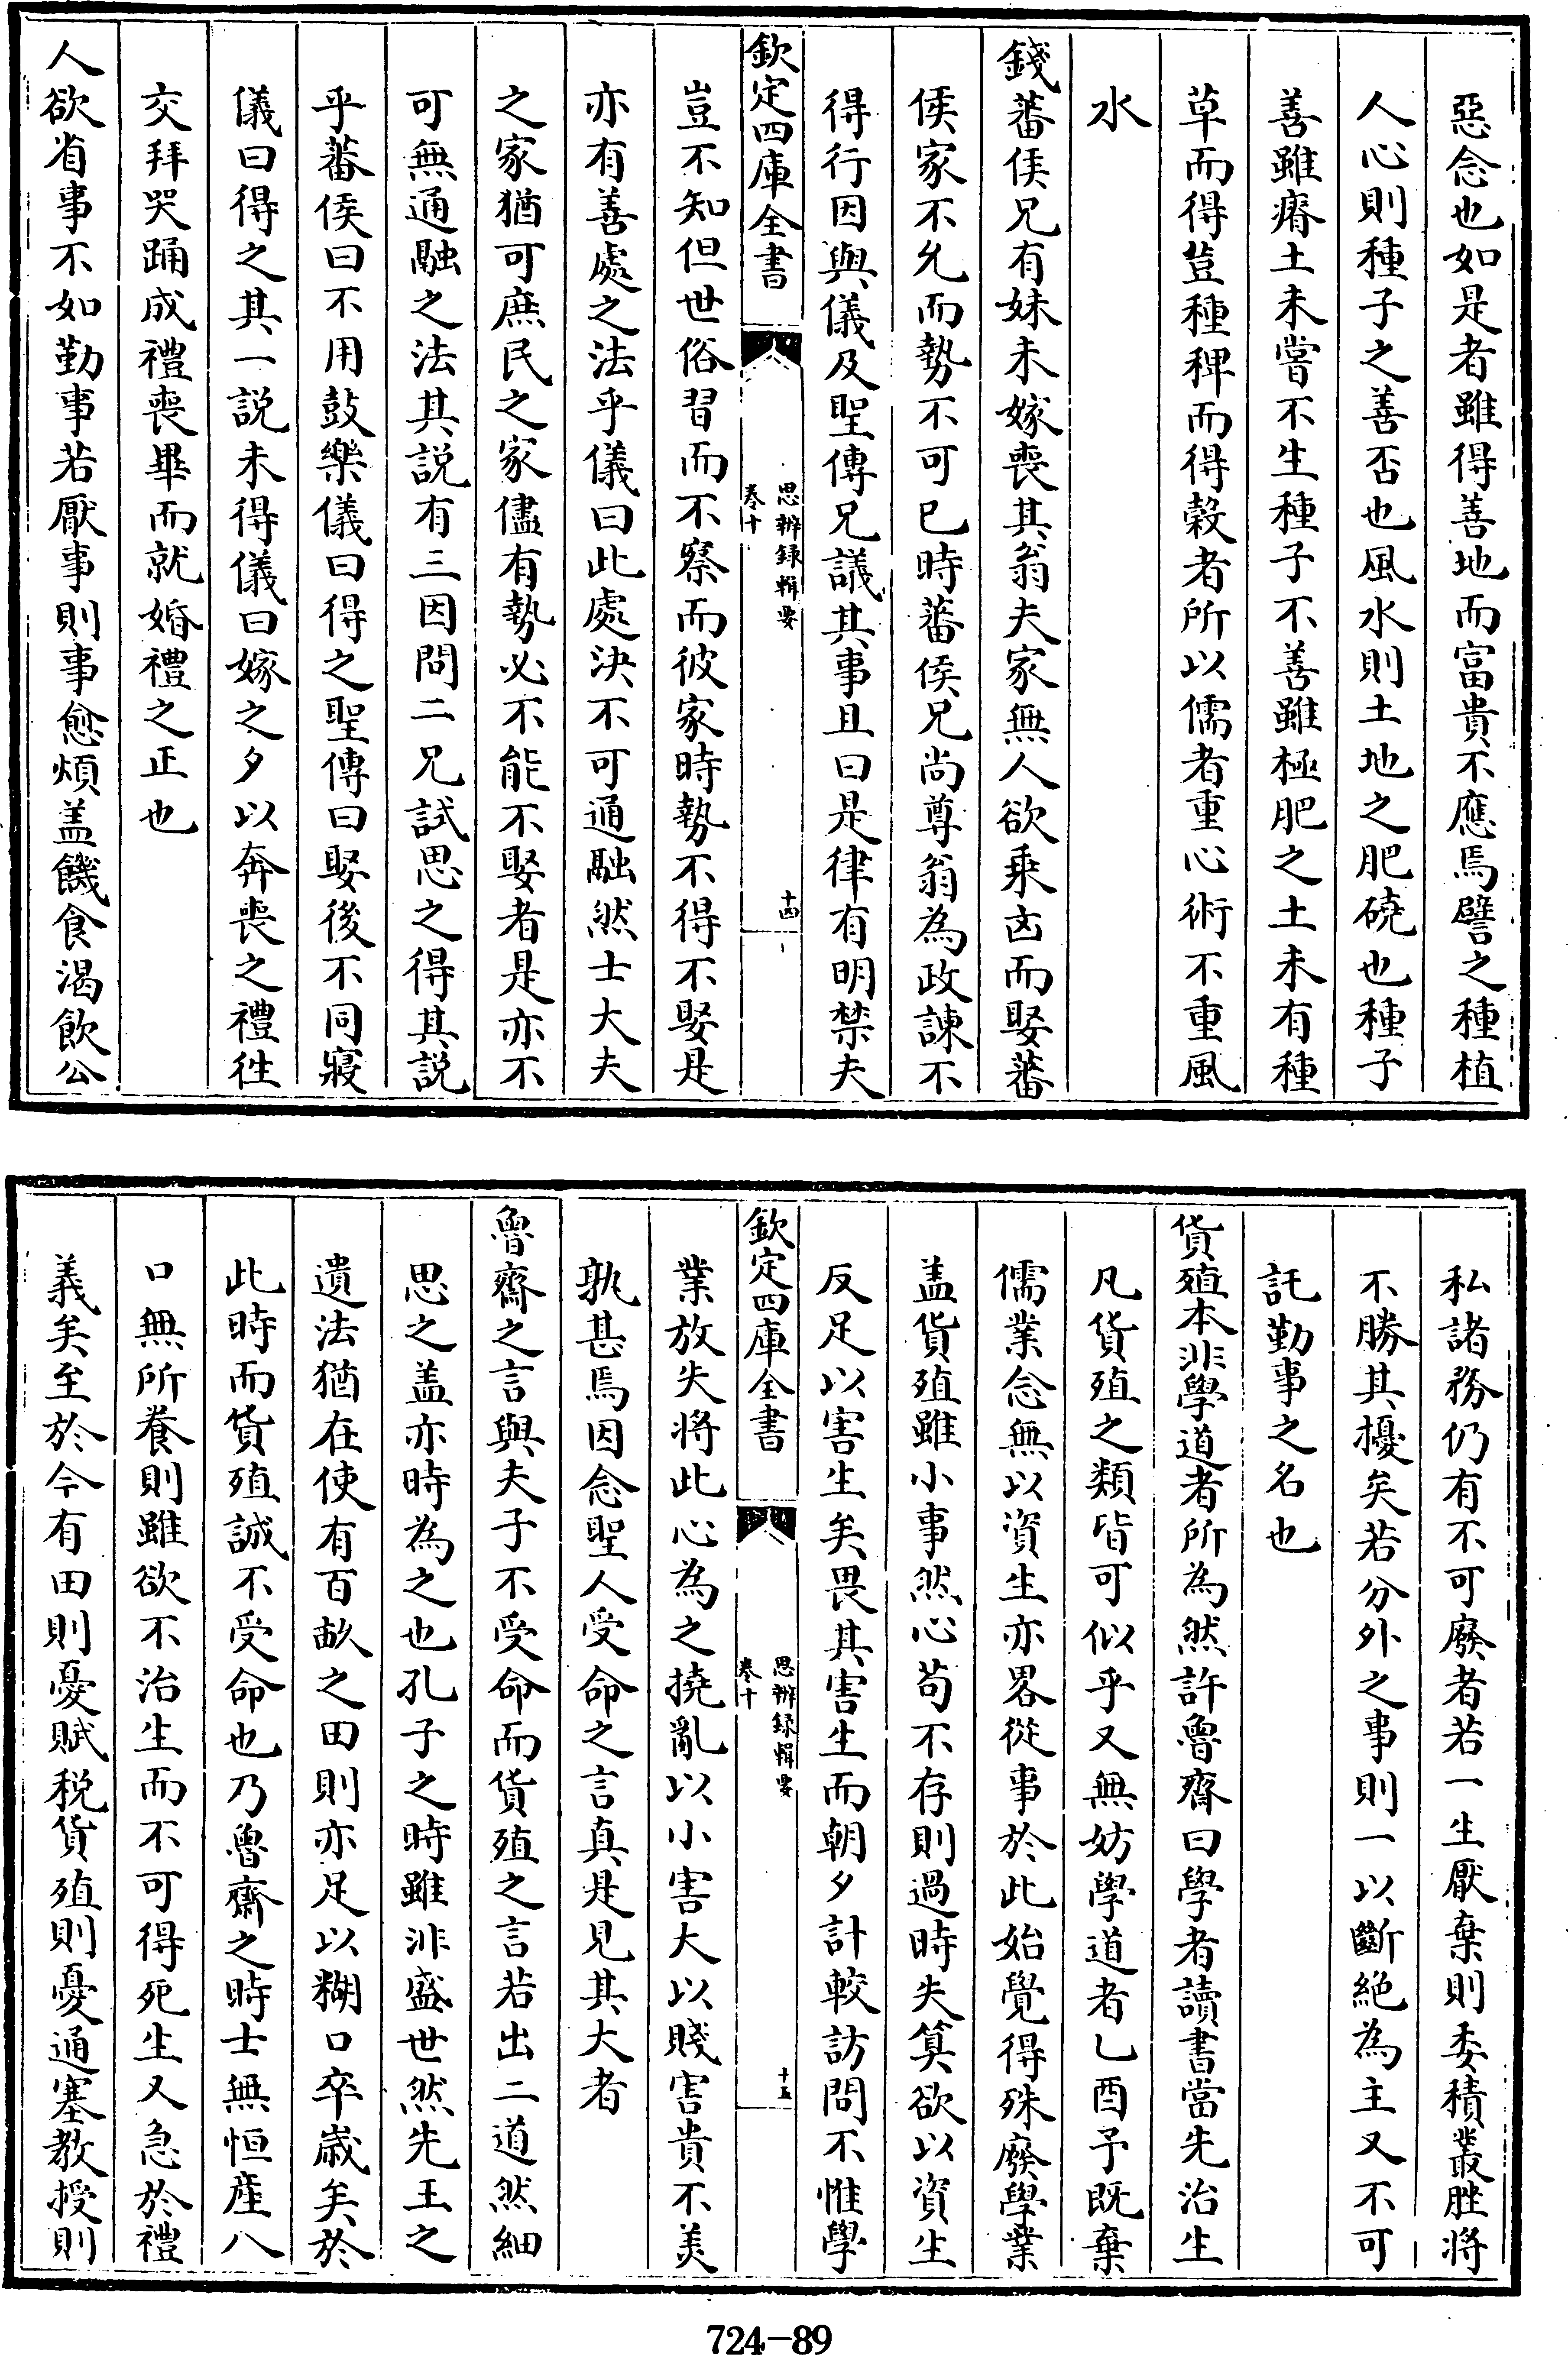 惡念也如是者雖得善地而富貴不應焉譬之種植
人心則種子之善否也風水則土地之肥磽也種子
善雖瘠土未嘗不生種子不善雖極肥之土未有種
草而得荳種稗而得榖者所以儒者重心術不重風
水
錢蕃侯兄有妹未嫁喪其翁夫家無人欲乗凶而娶蕃
侯家不允而勢不可已時蕃侯兄尚尊翁為政諫不
得行因與儀及聖傳兄議其事且曰是律有明禁夫
欽定四庫全書
思辨録輯要
卷十
十四
豈不知但世俗習而不察而彼家時勢不得不娶是
亦有善處之法乎儀曰此處決不可通融然士大夫
之家猶可庶民之家儘有勢必不能不娶者是亦不
可無通融之法其説有三因問二兄試思之得其説
乎蕃侯曰不用鼓樂儀曰得之聖傳曰娶後不同寢
儀曰得之其一説未得儀曰嫁之夕以奔喪之禮徃
交拜哭踊成禮喪畢而就婚禮之正也
人欲省事不如勤事若厭事則事愈煩盖饑食渴飲公
私諸務仍有不可廢者若一生厭棄則委積叢脞將
不勝其擾矣若分外之事則一以斷絶為主又不可
託勤事之名也
貨殖本非學道者所為然許魯齋曰學者讀書當先治生
凡貨殖之類皆可似乎又無妨學道者乙酉予既棄
儒業念無以資生亦畧從事於此始覺得殊廢學業
盖貨殖雖小事然心茍不存則過時失算欲以資生
反足以害生矣畏其害生而朝夕計較訪問不惟學
欽定四庫全書
思辨録輯要
卷十
十五
業放失将此心為之撓亂以小害大以賤害貴不美
孰甚焉因念聖人受命之言真是見其大者
魯齋之言與夫子不受命而貨殖之言若出二道然細
思之盖亦時為之也孔子之時雖非盛世然先王之
遺法猶在使有百畝之田則亦足以糊口卒歲矣於
此時而貨殖誠不受命也乃魯齋之時士無恒産八
口無所養則雖欲不治生而不可得死生又急於禮
義矣至於今有田則憂賦税貨殖則憂通塞教授則
724-89